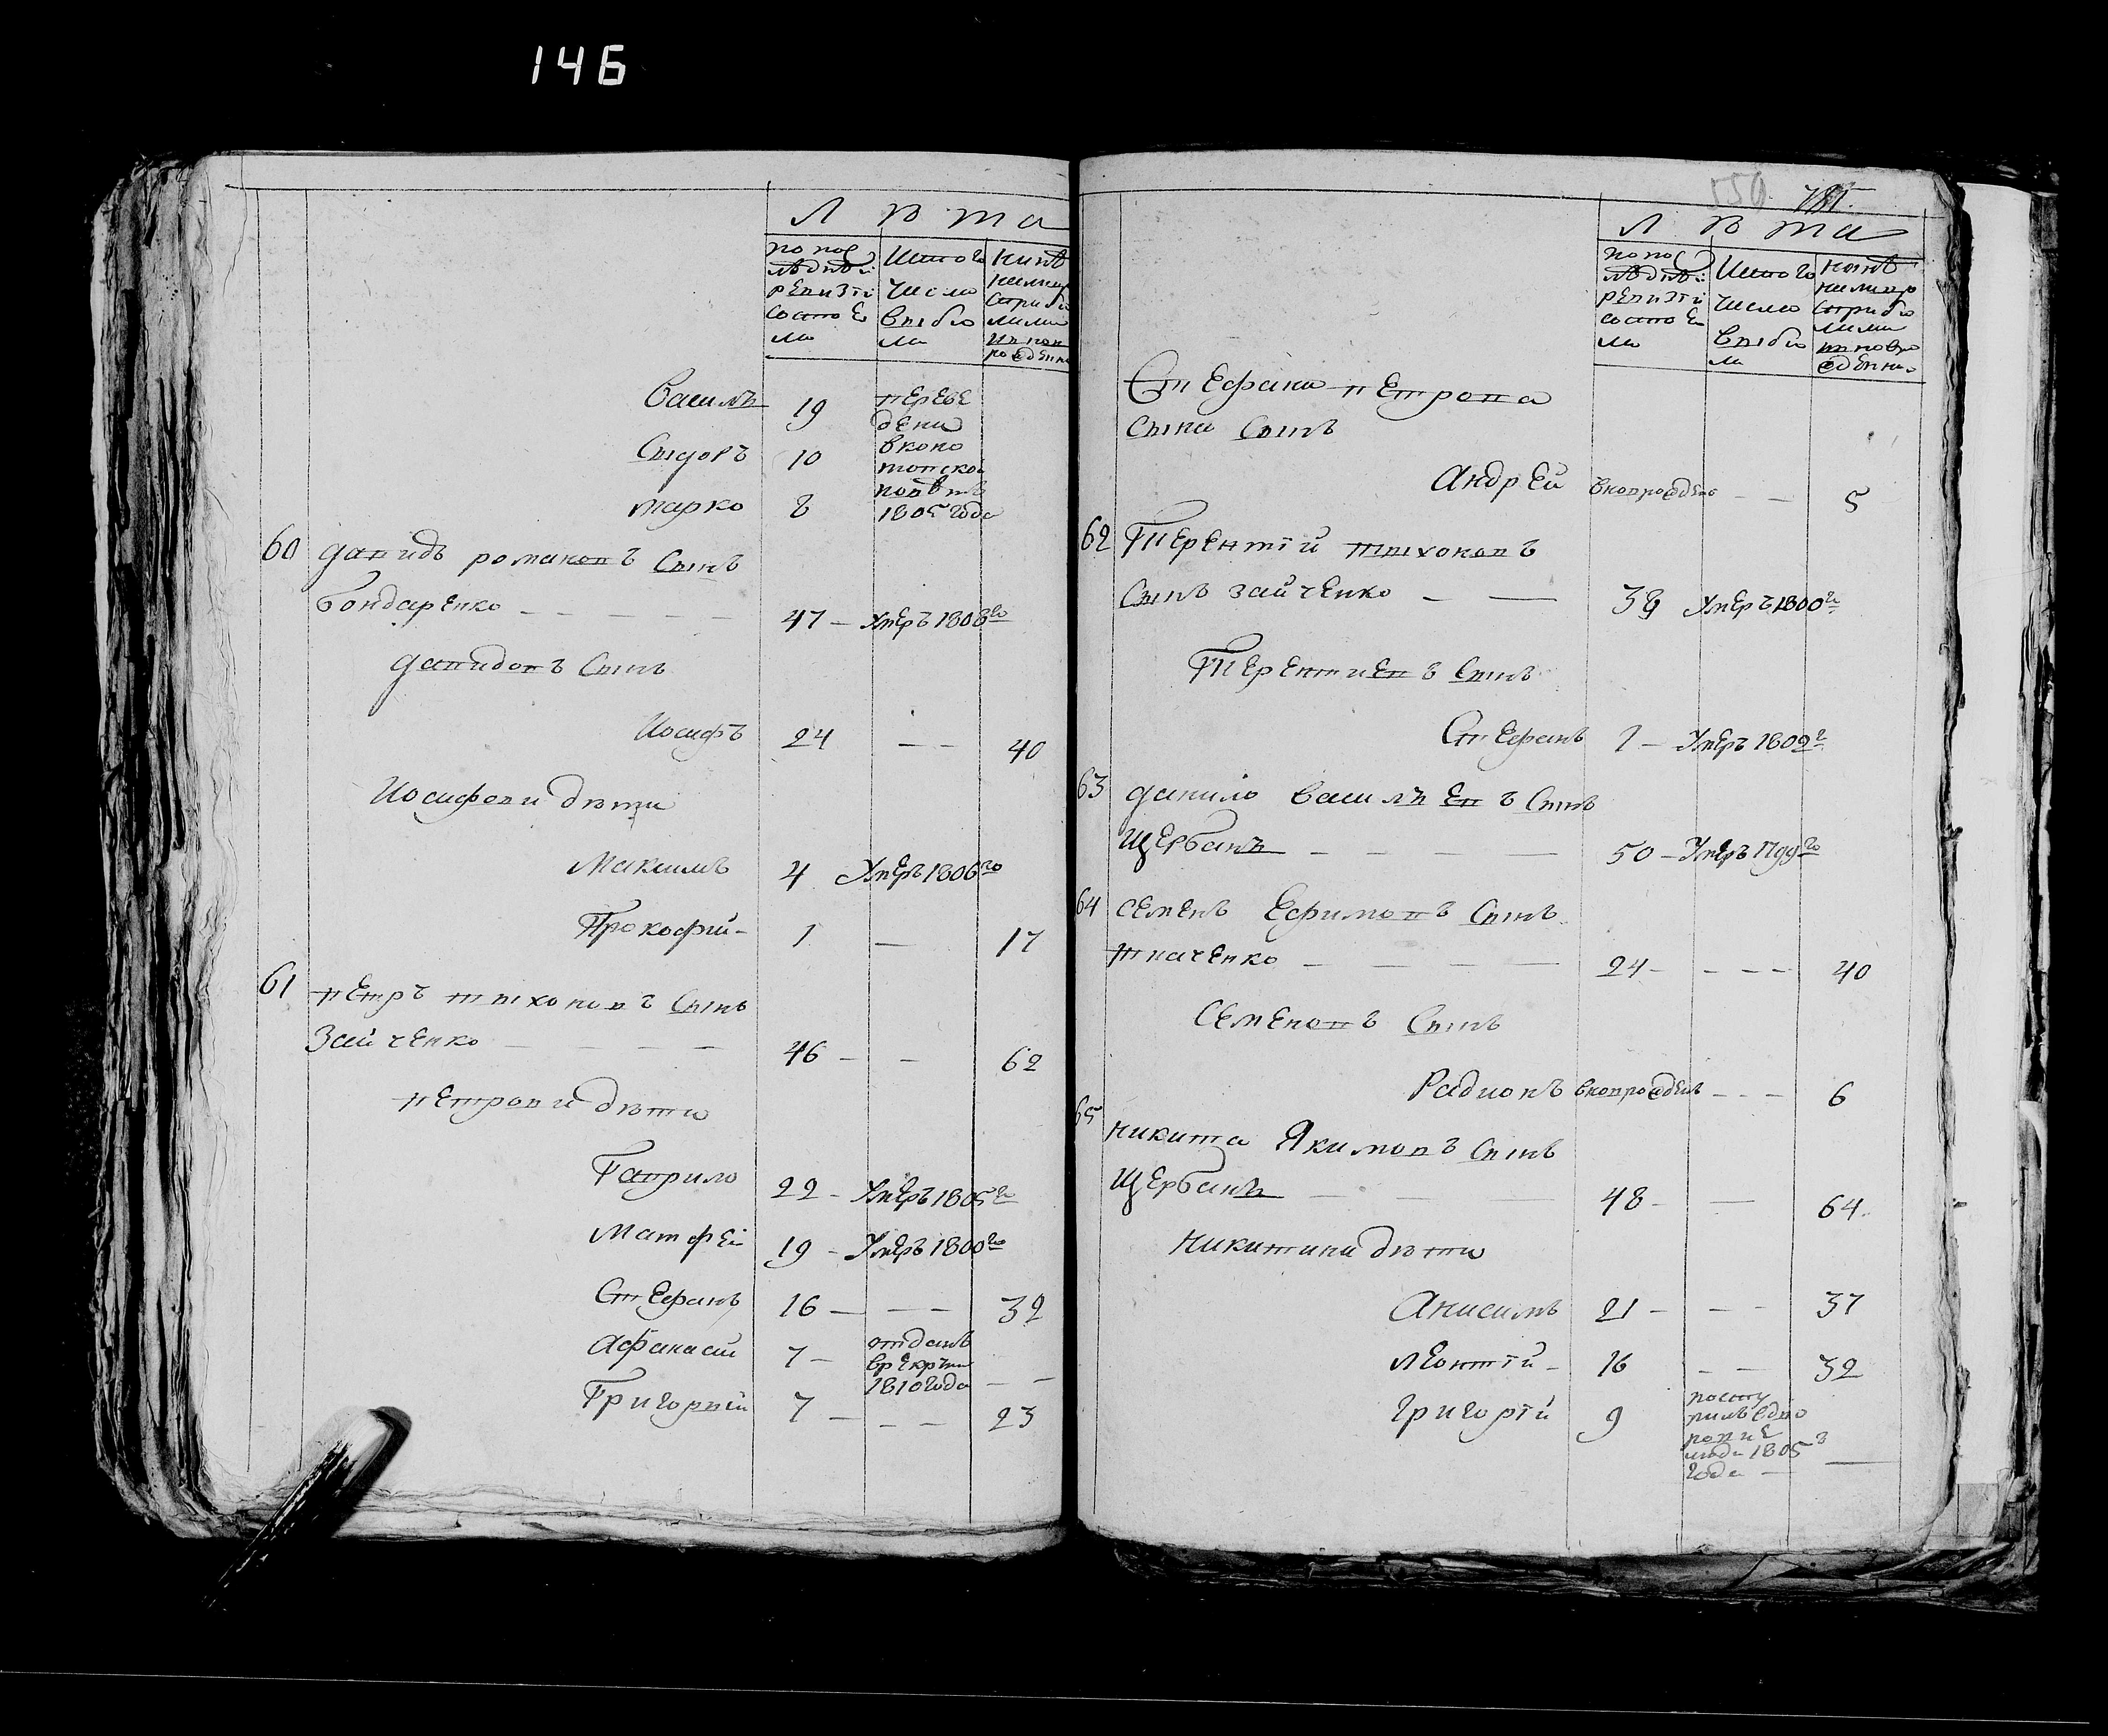 146
Лѣта
по пос
лѣдней
ревизіи
состоя
ло
Изтого
число
выбы
ло
Василь 19 переве
дени
Сыдоръ 10 вконо
топской
Марко 8 повѣтъ
1805 года
60 Давидъ романовъ Сынъ
Бондаренко — — — — — 47 — Умеръ 1808го
Давидовъ Сынъ
Иосифъ 24 — — 40
Иосифови дѣти
Максимъ 4 Умеръ 1806го
Прокофий — 1 — 17
61 Петръ тихоновъ Сынъ
Зайченко — — — — 46 — — 62
Петрови дѣти
Гаврило 22 — Умеръ 1805го
Матфей 19 — Умеръ 1800го
Стефанъ 16 — — — 32
Афанасий 7 — отданъ
врекруты
1810 года — —
Григорий 7 — — — 23
150
Лѣта
по пос
лѣдней
ревизіи
состоя
ло
Изтого
число
выбы
ло
Стефана петрова
сына Сынъ
Андрей вноворожденъ — — 5
62 Терентій тихоновъ
Сынъ зайченко — — 39 Умеръ 1800го
Терентиевъ Сынъ
Стефанъ 1 — Умеръ 1809г
63 Данило Васильевъ Сынъ
Щербань — — — — 50 — Умеръ 1799го
64 Семенъ Ефимовъ Сынъ
Ткаченко — — — — 24 — — — — 40
Семеновъ Сынъ
Радионъ вноворожденъ — — — 6
65 Никита Якимовъ Сынъ
Щербань — — 48 — — 64
Никитини дѣти
Анисимъ 21 — — — 37
Леонтій — 16 — — 32
Григорій 9 посту
пилъ вдво
ровие
люди 1805
года — —